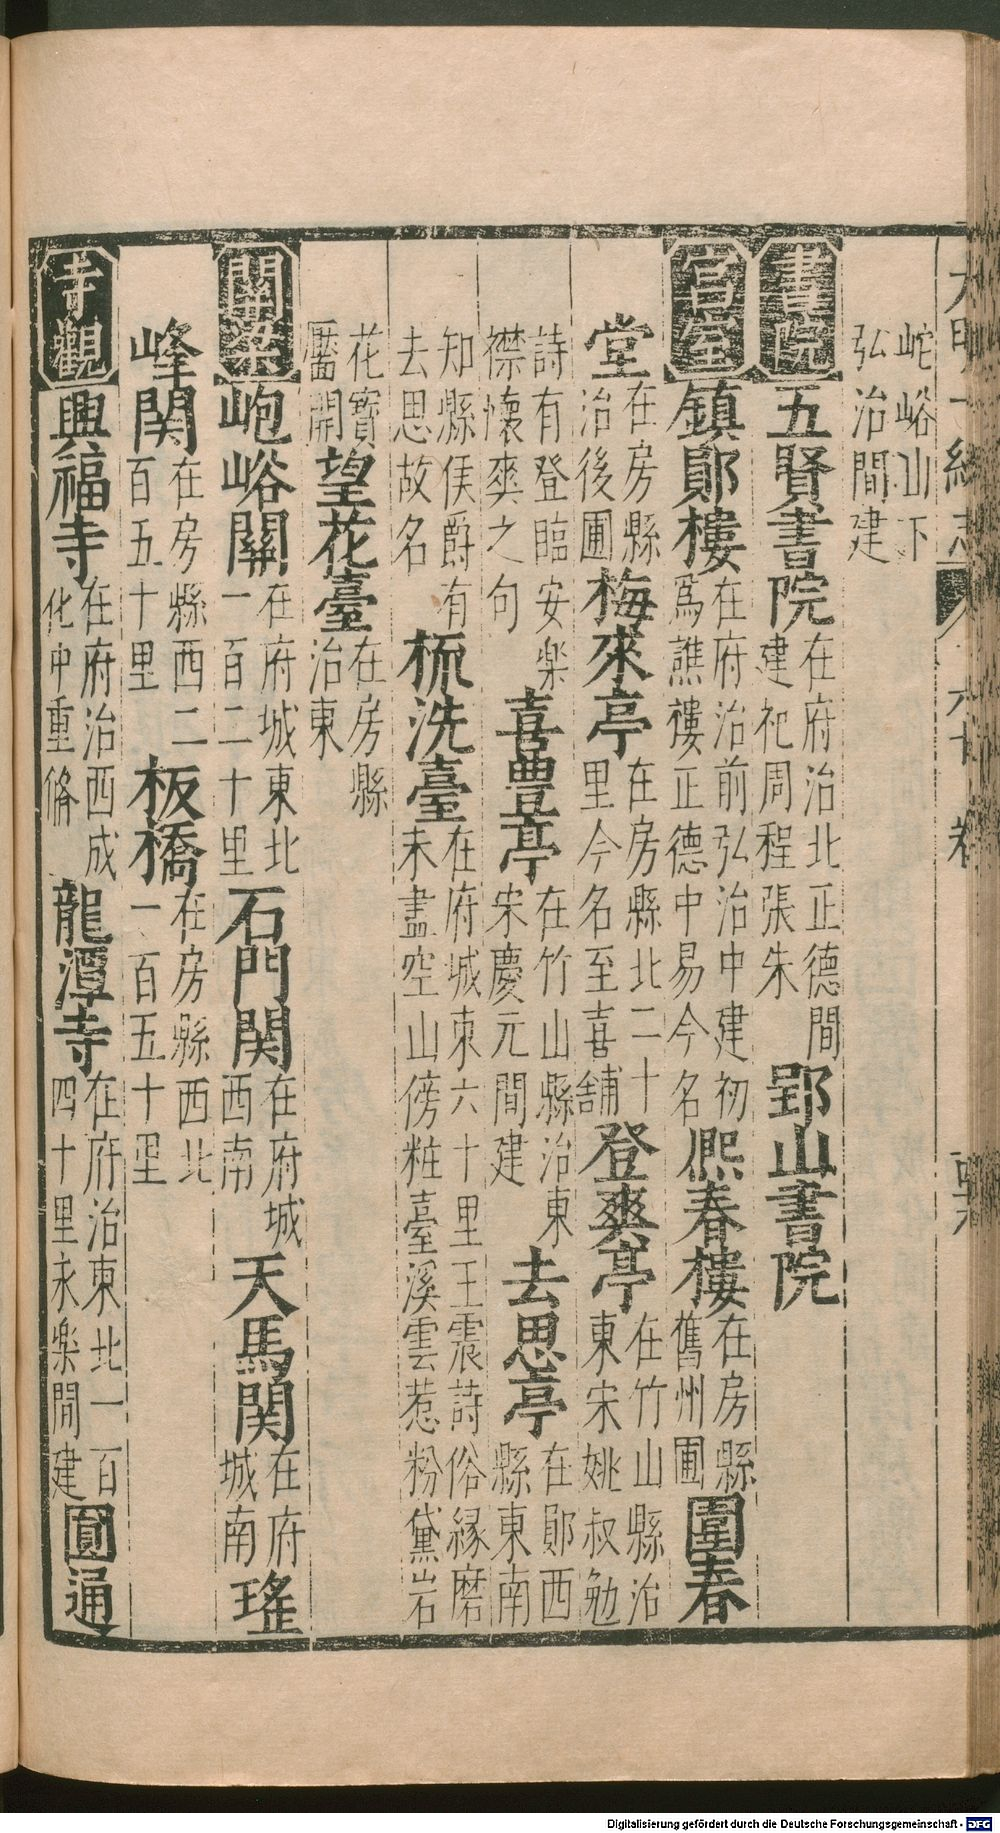 岮峪山下
弘治間建
書院 五賢書院 在府治北正德間建祀周程張朱 郢山書院
宮室 鎮鄖樓 在府治前弘治中建初爲譙樓正德中易今名 熈春樓 在房縣舊州圃 圍春
堂 在房縣治後圃 梅來亭 在房縣北二十里今名至喜舖 登爽亭 在竹山縣治東宋姚叔勉
詩有登臨安樂襟懷爽之句 喜豐亭 在竹山縣治東宋慶元間建 去思亭 在鄖西縣東南
知縣侯爵有去思故名 梳洗臺 在府城東六十里王震詩俗縁磨未盡空山傍粧臺溪雲惹粉黛岩
花寳靨開 望花臺 在房縣治東
關梁 峗峪關 在府城東北一百二十里 石門関 在府城西南 天馬関 在府城南 瑤
峰関 在房縣西二百五十里 板橋 在房縣西北一百五十里
寺觀 興福寺 在府治西成化中重脩 龍潭寺 在府治東北一百四十里永樂間建 圓通
Digitalisierung gefördert durch die Deutsche Forschungsgemeinschaft - DFG